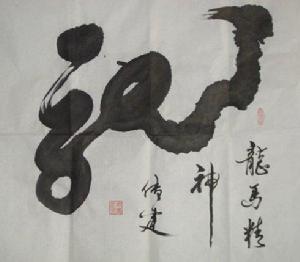 龍
龍馬精
神
傳建